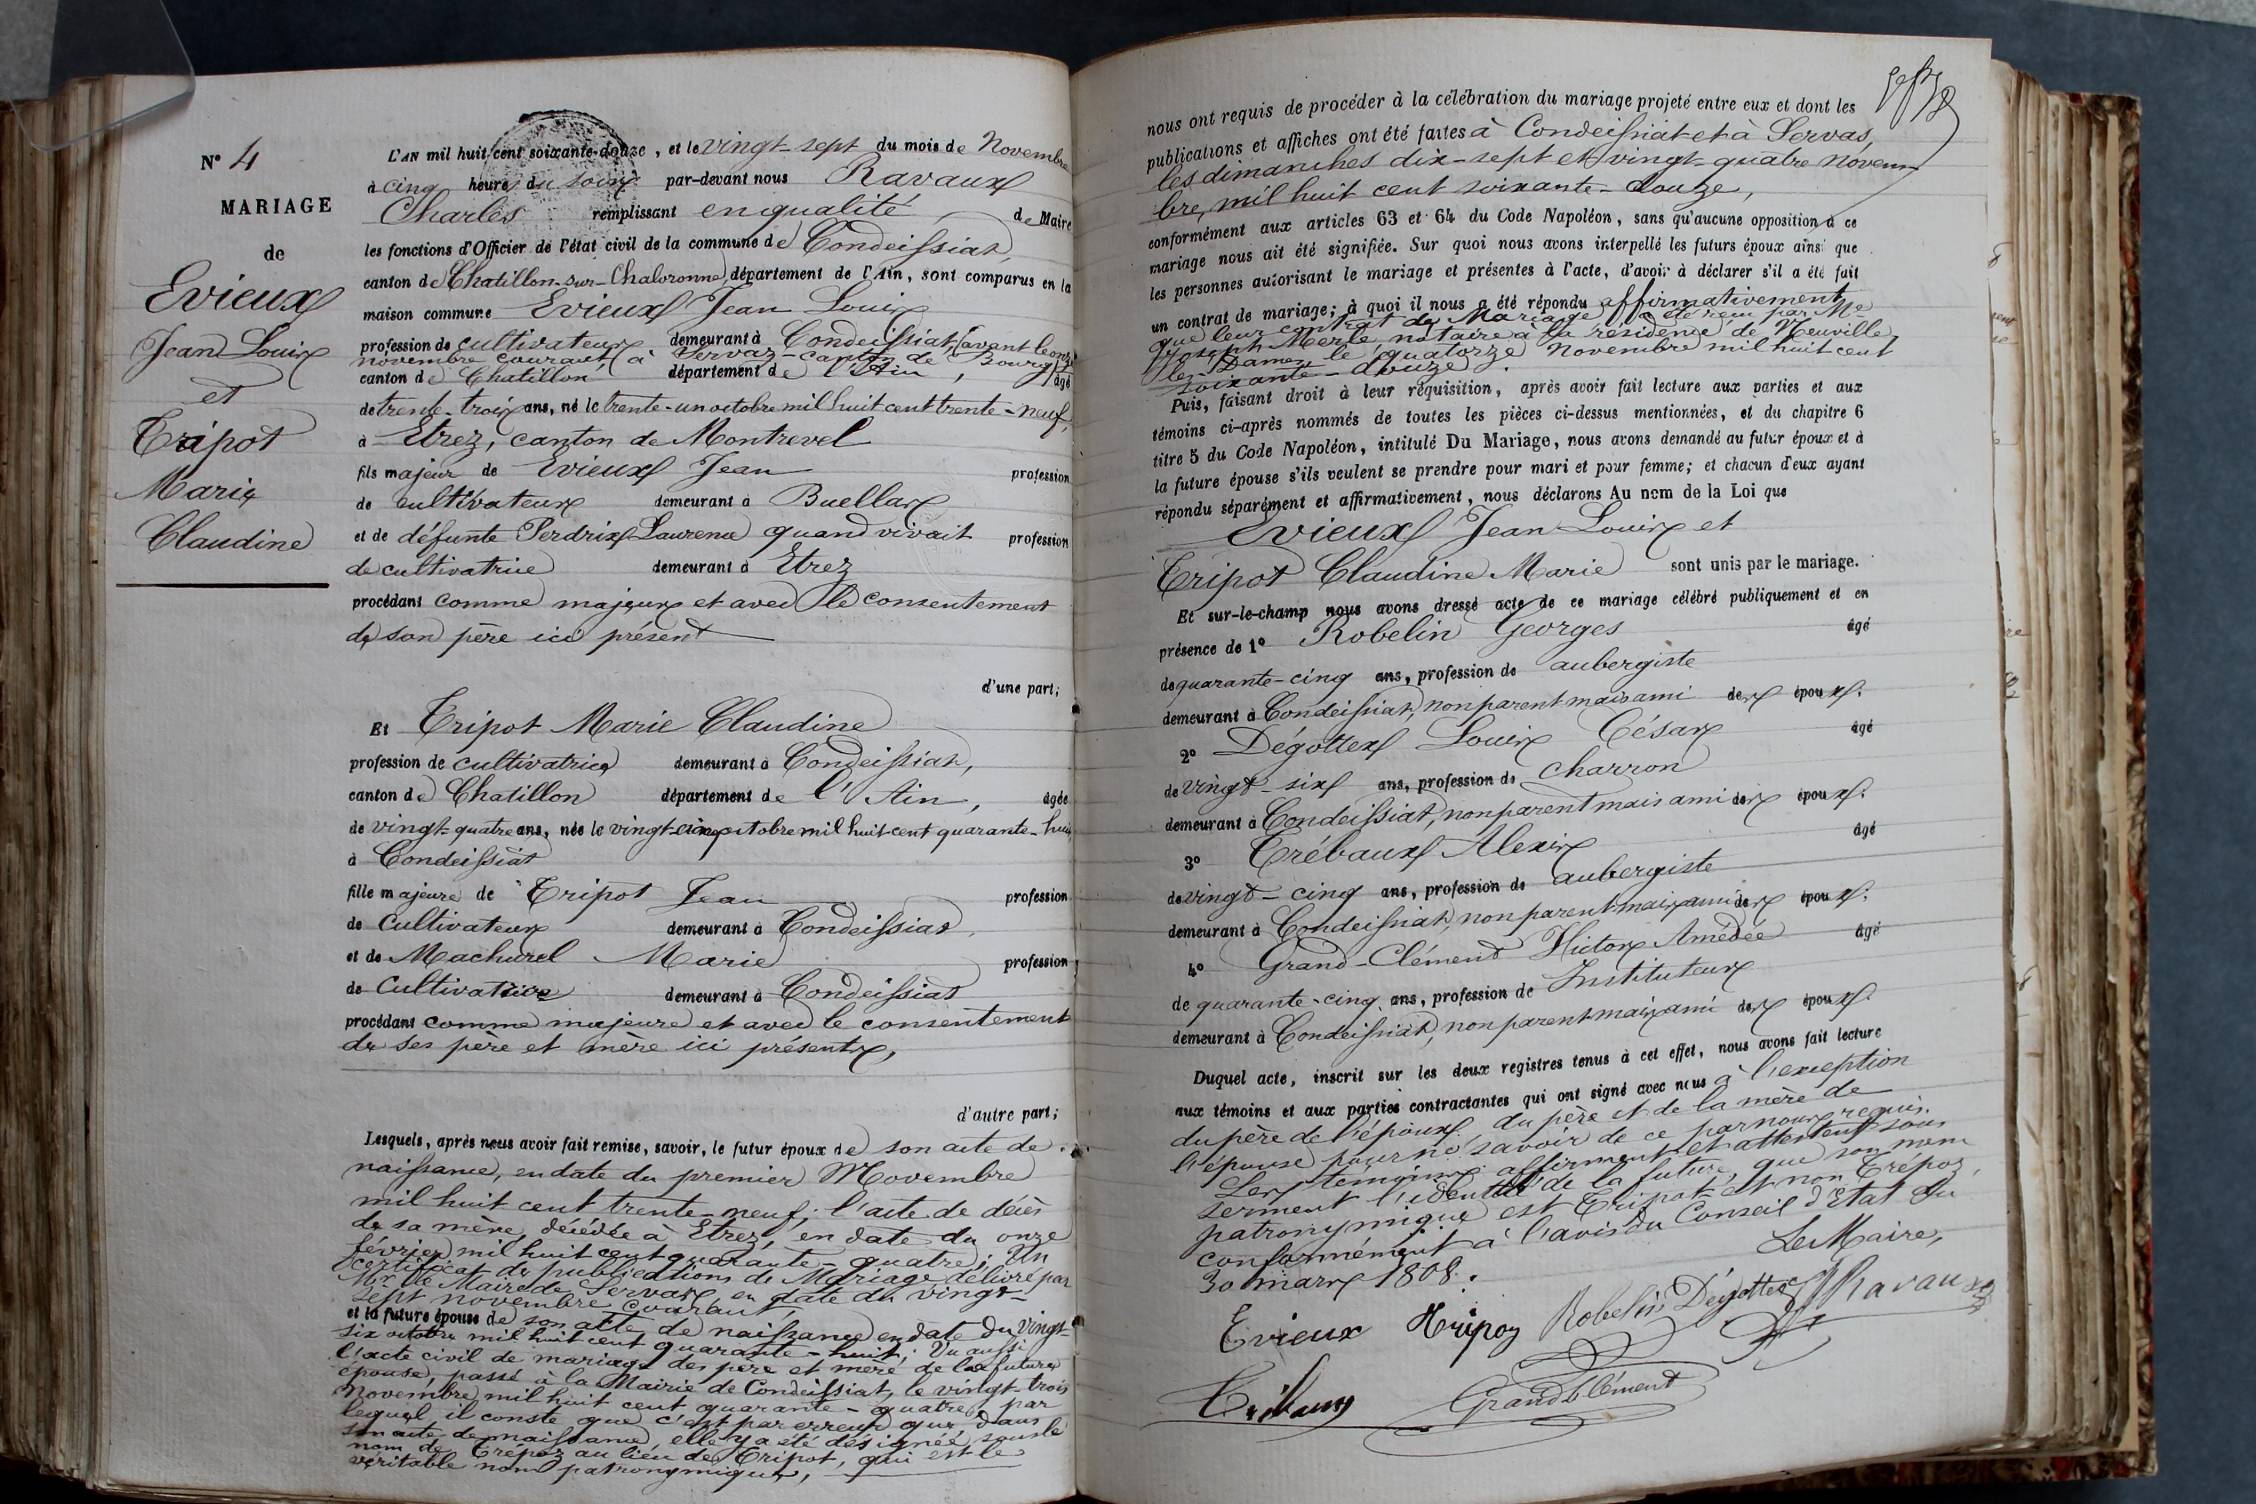 N° 4
MARIAGE
de
Evieux
Jean Louis
et
Tripot
Marie
Claudine
L'AN mil huit cent soixante-douze, et le vingt-sept du mois de Novembre
à cinq heures du soir par-devant nous Ravaux
Charles remplissant en qualité de Maire
les fonctions d'Officier de l'état civil de la commune de Condeissiat,
canton de Chatillon-sur-Chalaronne, département de l'Ain, sont comparus en la
maison commune Evieux Jean Louis
profession de cultivateur demeurant à Condeissiat, (avant le onze
novembre courant, à Servaz - canton de Bourg)
canton de Chatillon département de l'Ain, âgé
de trente-trois ans, né le trente-un octobre mil huit cent trente-neuf,
à Etrez, canton de Montrevel
fils majeur de Evieux Jean profession
de cultivateur demeurant à Buellas
et de défunte Perdrix Laurence quand vivait profession
de cultivatrice demeurant à Etrez
procédant comme majeur et avec le consentement
de son père ici présent
d'une part;
Et Tripot Marie Claudine
profession de cultivatrice demeurant à Condeissiat,
canton de Chatillon département de l'Ain, âgée
de vingt-quatre ans, née le vingt-cinq octobre mil huit cent quarante-huit
à Condeissiat
fille majeure de Tripot Jean profession
de cultivateur demeurant à Condeissiat,
et de Machurel Marie profession
de cultivatrice demeurant à Condeissiat
procédant comme majeure et avec le consentement
de ses père et mère ici présents,
d'autre part;
Lesquels, après nous avoir fait remise, savoir, le futur époux de son acte de
naissance, en date du premier Novembre
mil huit cent trente-neuf; l'acte de décès
de sa mère, décédée à Etrez, en date du onze
février mil huit cent quarante-quatre; Un
certificat de publications de Mariage délivré par
Mr. le Maire de Servas, en date du vingt-
sept novembre courant,
et la future épouse de son acte de naissance en date du vingt-
six octobre mil huit cent quarante-huit; Vu aussi
l'acte civil de mariage des père et mère de la future
épouse, passé à la Mairie de Condeissiat, le vingt-trois
Novembre mil huit cent quarante-quatre, par
lequel il conste que c'est par erreur que, dans
son acte de naissance, elle y a été désignée sous le
nom de Trépoz au lieu de Tripot, qui est le
véritable nom patronymique,
nous ont requis de procéder à la célébration du mariage projeté entre eux et dont les
publications et affiches ont été faites à Condeissiat et à Servas,
les dimanches dix-sept et vingt-quatre novem-
bre, mil huit cent soixante-douze,
conformément aux articles 63 et 64 du Code Napoléon, sans qu'aucune opposition à ce
mariage nous ait été signifiée. Sur quoi nous avons interpellé les futurs époux ainsi que
les personnes autorisant le mariage et présentes à l'acte, d'avoir à déclarer s'il a été fait
un contrat de mariage; à quoi il nous a été répondu affirmativement
que leur contrat de Mariage a été reçu par Me
Joseph Merle, notaire à la résidence de Neuville
les-Dames, le quatorze Novembre mil huit cent
soixante-douze.
Puis, faisant droit à leur réquisition, après avoir fait lecture aux parties et aux
témoins ci-après nommés de toutes les pièces ci-dessus mentionnées, et du chapitre 6
titre 5 du Code Napoléon, intitulé Du Mariage, nous avons demandé au futur époux et à
la future épouse s'ils veulent se prendre pour mari et pour femme; et chacun d'eux ayant
répondu séparément et affirmativement, nous déclarons Au nom de la Loi que
Evieux Jean Louis et
Tripot Claudine Marie sont unis par le mariage.
Et sur-le-champ nous avons dressé acte de ce mariage célébré publiquement et en
présence de 1° Robelin Georges âgé
de quarante-cinq ans, profession de aubergiste
demeurant à Condeissiat, non parent mais ami des époux.
2° Dégottex Louis César âgé
de vingt-six ans, profession de charron
demeurant à Condeissiat, non parent mais ami des époux.
3° Trébaux Alexis âgé
de vingt-cinq ans, profession de aubergiste
demeurant à Condeissiat, non parent mais ami des époux.
4° Grand-Clément Victor Amédée âgé
de quarante-cinq ans, profession de Instituteur
demeurant à Condeissiat, non parent mais ami des époux.
Duquel acte, inscrit sur les deux registres tenus à cet effet, nous avons fait lecture
aux témoins et aux parties contractantes qui ont signé avec nous à l'exception
du père de l'époux, du père et de la mère de
l'épouse pour ne savoir de ce par nous requis.
Les témoins affirment et attestent sous
serment l'identité de la future, que son nom
patronymique est Tripot et non Trépoz,
conformément à l'avis du Conseil d'Etat du
30 mars 1808.
Le Maire,
Evieux Tripoz Robelin Dégottex Ravaux
Trébaux Grandclément